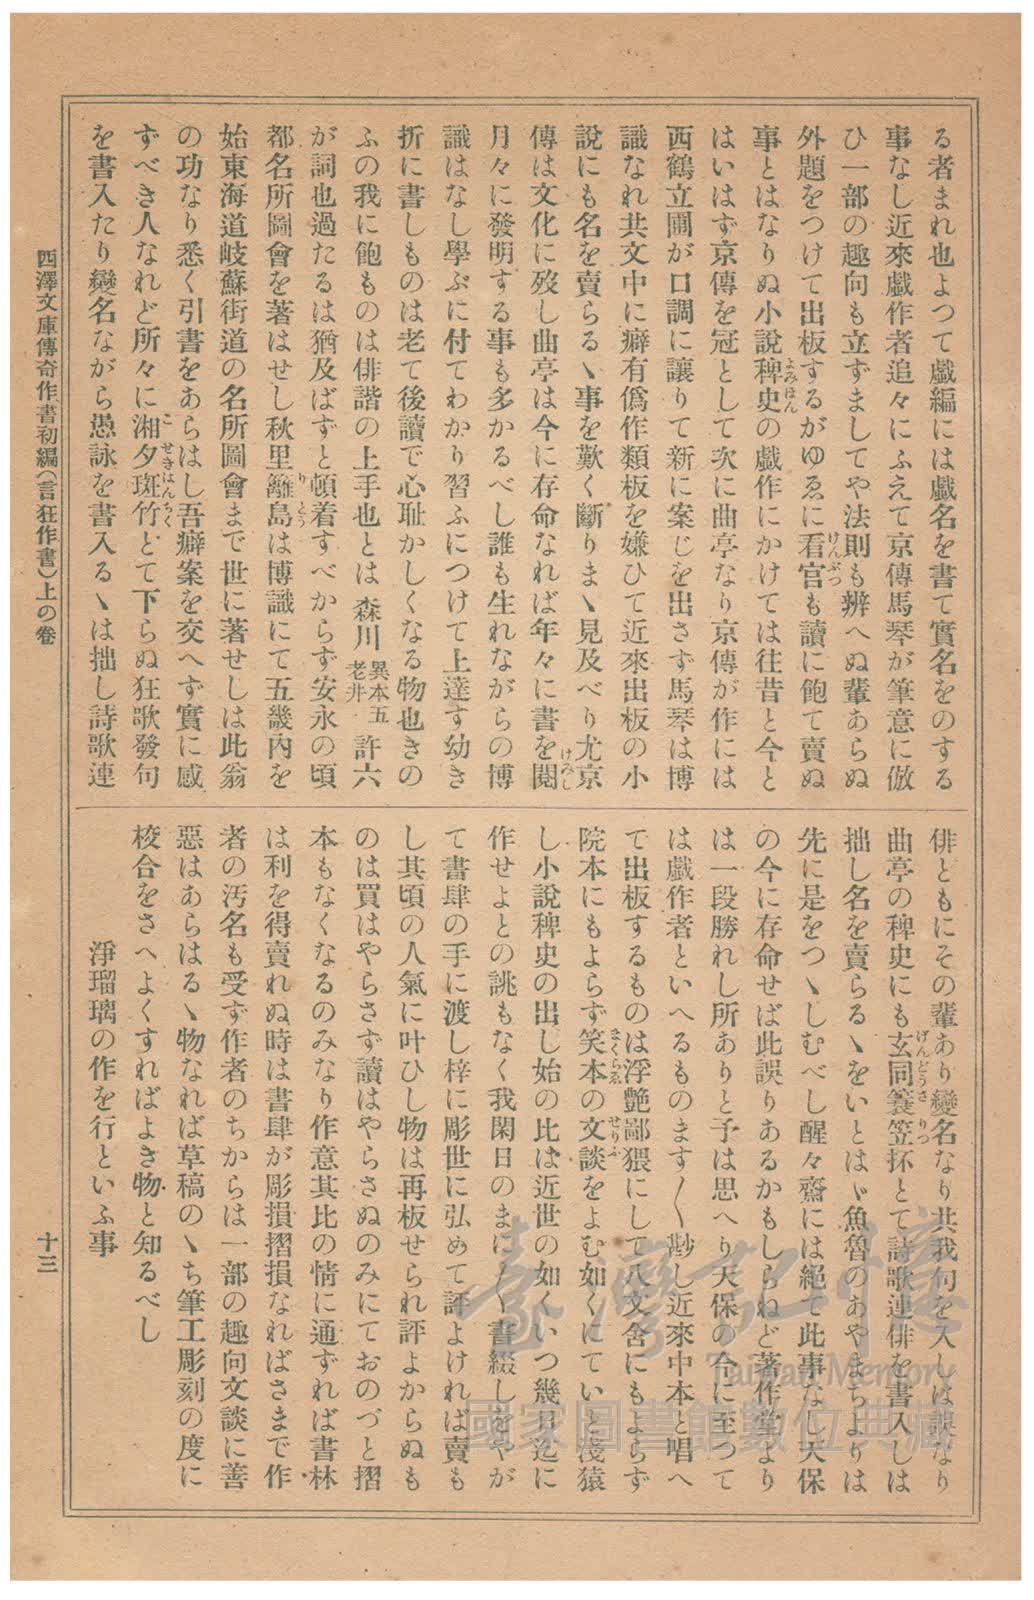 る者まれ也よつて戯編には戯名を書て實名をのする
事なし近來戯作者追々にふえて京傳馬琴が筆意に倣
ひ一部の趣向も立ずましてや法則も辨へぬ輩あらぬ
外題をつけて出板するがゆゑに看官も讀に飽て賣ぬ
事とはなりぬ小說稗史の戯作にかけては往昔と今と
はいはず京傳を冠として次に曲亭なり京傳が作には
西鶴立圃が口調に讓りて新に案じを出さず馬琴は博
識なれ共文中に癖有僞作類板を嫌ひて近來出板の小
說にも名を賣らるゝ事を歎く斷りまゝ見及べり尤京
傳は文化に歿し曲亭は今に存命なれば年々に書を閲
月々に發明する事も多かるべし誰も生れながらの博
識はなし學ぶに付てわかり習ふにつけて上達す幼き
折に書しものは老て後讀で心耻かしくなる物也きの
ふの我に飽ものは俳諧の上手也とは森川異本五老井許六
が詞也過たるは猶及ばずと頓着すべからず安永の頃
都名所圖會を著はせし秋里籬島は博識にて五畿內を
始東海道岐蘇街道の名所圖會まで世に著せしは此翁
の功なり悉く引書をあらはし吾癖案を交へず實に感
ずべき人なれど所々に湘夕斑竹とて下らぬ狂歌發句
を書入たり變名ながら愚詠を書入るゝは拙し詩歌連
俳ともにその輩あり變名なり共我句を入しは誤なり
曲亭の稗史にも玄同簑笠抔とて詩歌連俳を書入しは
拙し名を賣らるゝをいとはゞ魚魯のあやまちよりは
先に是をつゝしむべし醒々齋には絕て此事なし天保
の今に存命せば此誤りあるかもしらねど著作堂より
は一段勝れし所ありと予は思へり天保の今に至つて
は戯作者といへるものます〳〵尠し近來中本と唱へ
て出板するものは浮艶鄙猥にして八文舍にもよらず
院本にもよらず笑本の文談をよむ如くにていと淺猿
し小說稗史の出し始の比は近世の如くいつ幾日迄に
作せよとの誂もなく我閑日のまに〳〵書綴しをやが
て書肆の手に渡し梓に彫世に弘めて評よければ賣も
し其頃の人氣に叶ひし物は再板せられ評よからぬも
のは買はやらさず讀はやらさぬのみにておのづと摺
本もなくなるのみなり作意其比の情に通ずれば書林
は利を得賣れぬ時は書肆が彫損摺損なればさまで作
者の汚名も受ず作者のちからは一部の趣向文談に善
惡はあらはるゝ物なれば草稿のゝち筆工彫刻の度に
校合をさへよくすればよき物と知るべし
淨瑠璃の作を行といふ事
西澤文庫傳奇作書初編(言狂作書)上の卷
十三
臺灣記憶
Taiwan Memory
國家圖書館數位典藏